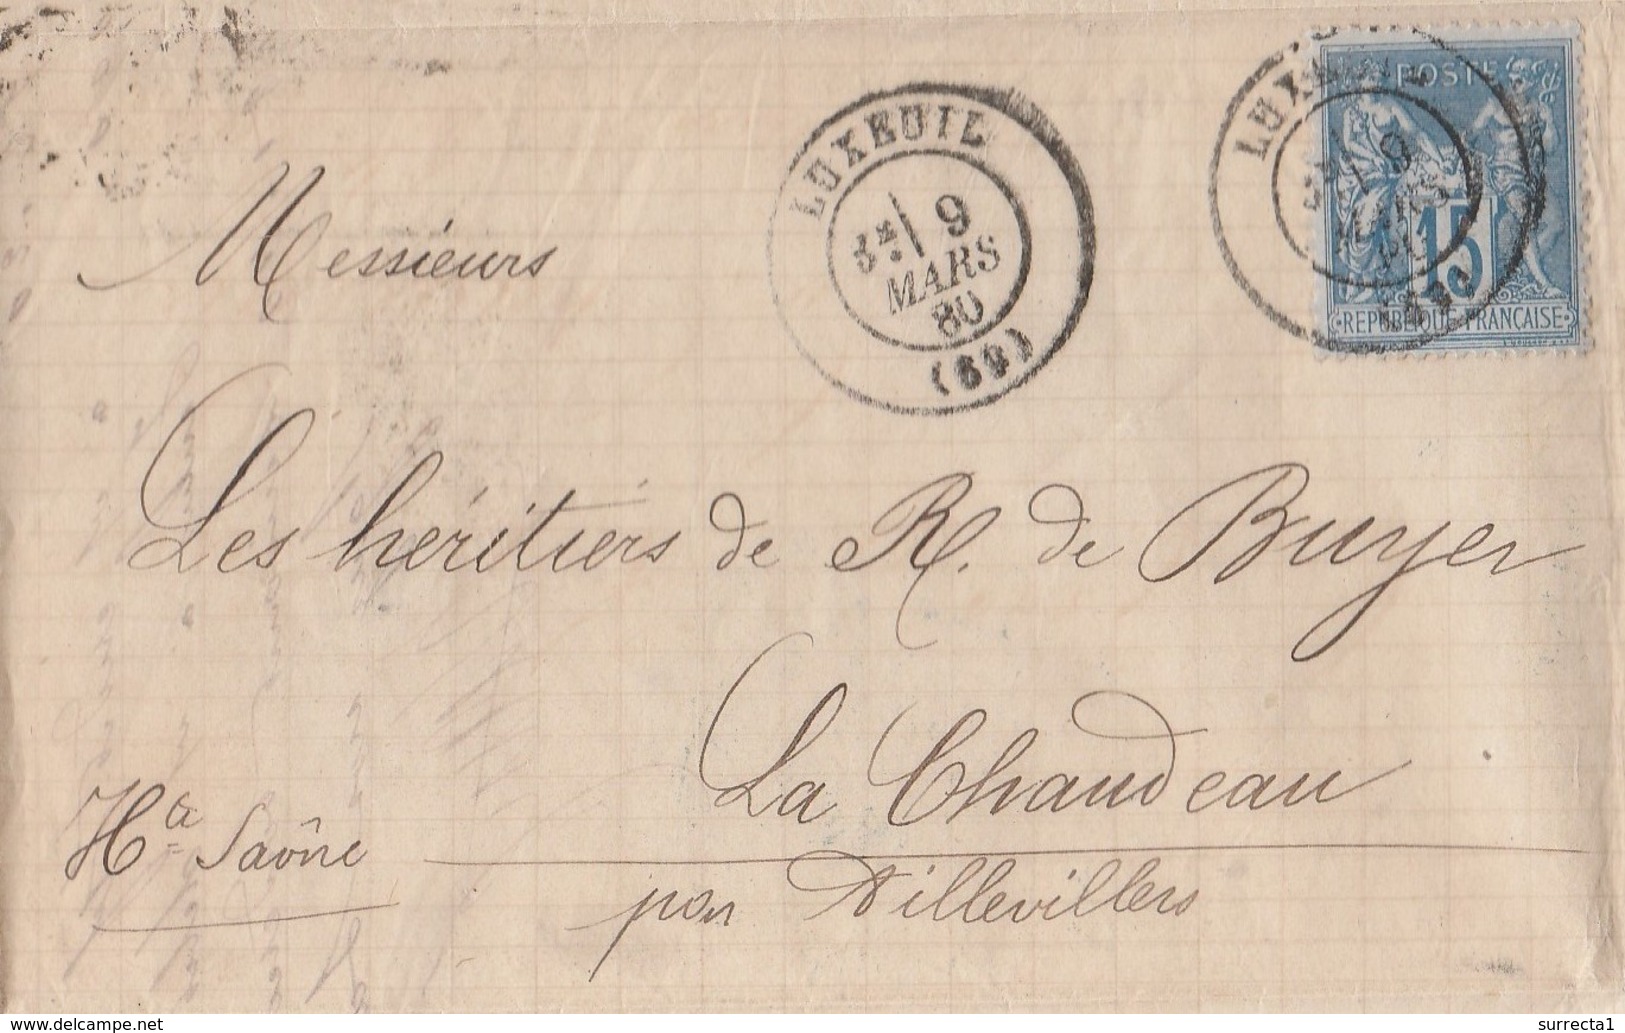 POSTE
LUXEUIL
LUXEUIL
3E 9
9
MARS
MARS
80
80
(69)
15
REPUBLIQUE FRANÇAISE
Messieurs
Les héritiers de R. de Buyer
La Chaudeau
Hte Saône
par Aillevillers
www.delcampe.net
surrecta1